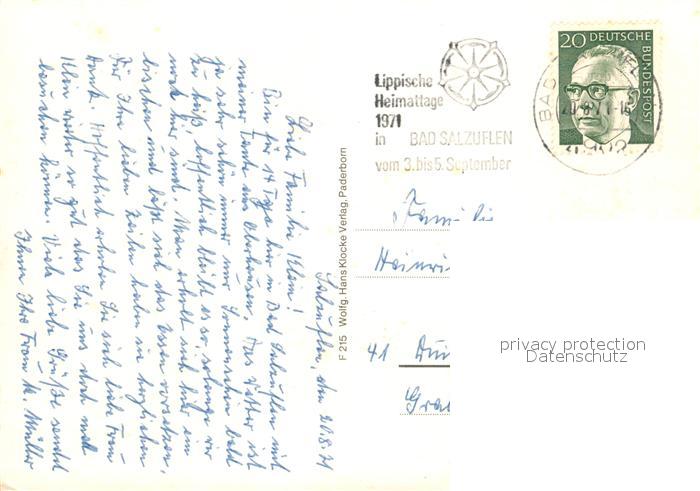 Salzuflen, den 20.8.71
Liebe Familie Klein!
Bin für 14 Tage hier in Bad Salzuflen mit
meiner Tante aus Oberhausen. Das Wetter ist
ja sehr schön immer nur Sonnenschein bald
zu heiß, hoffentlich bleibt es so solange wir
noch hier sind. Man erholt sich hier ein
bisschen und läßt sich das Essen vorsetzen.
Für Ihre lieben Zeilen haben sie herzlichen
Dank. Hoffentlich erholen Sie sich liebe Frau
Klein wieder so gut das Sie uns doch mal
besuchen können. Viele liebe Grüße sendet
Ihnen Ihre Frau K. Müller
F 215 Wolfg. Hans Klocke Verlag, Paderborn
Lippische
Heimattage
1971
in BAD SALZUFLEN
vom 3. bis 5. September
BAD
4902
20 DEUTSCHE
BUNDESPOST
Familie
Heinri
41 Dui
Gra
privacy protection
Datenschutz